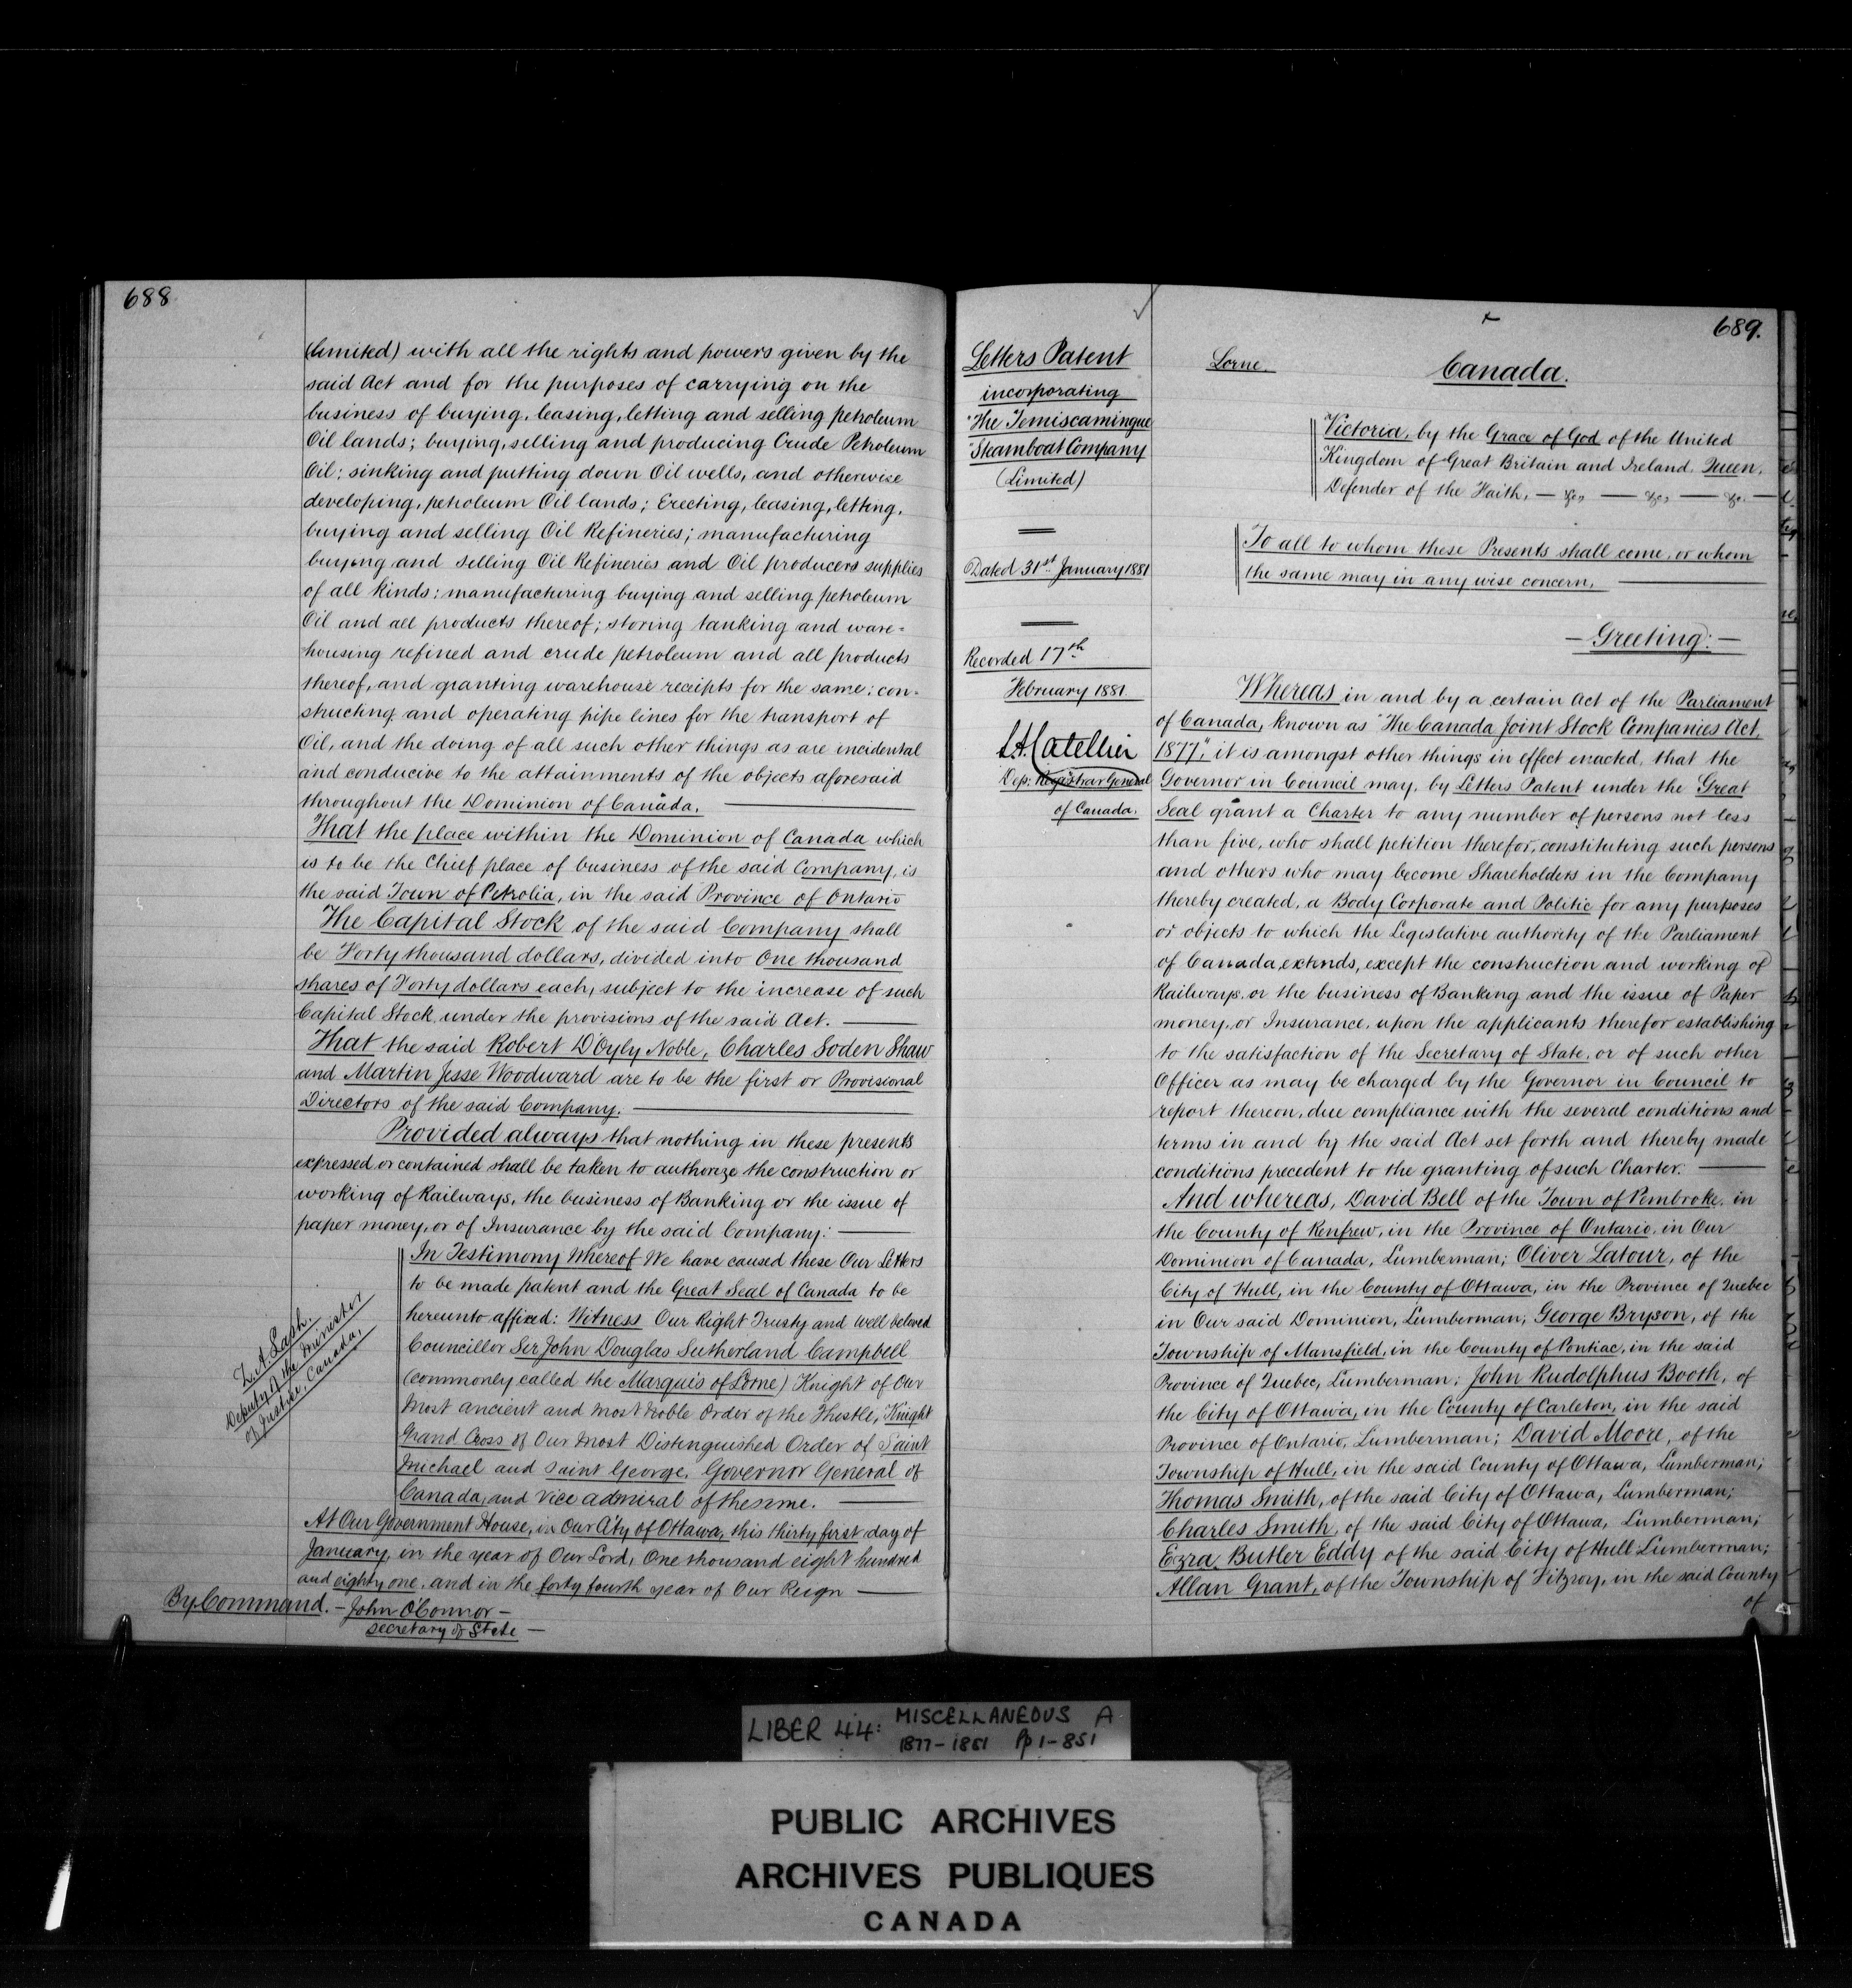 688
(Limited) with all the rights and powers given by the
said Act and for the purposes of carrying on the
business of buying, leasing, letting and selling petroleum
Oil lands; buying, selling and producing Crude Petroleum
Oil; sinking and putting down Oil wells, and otherwise
developing, petroleum Oil lands; Erecting, leasing, letting,
buying and selling Oil Refineries; manufacturing
buying and selling Oil Refineries and Oil producers supplies
of all kinds; manufacturing buying and selling petroleum
Oil and all products thereof; storing tanking and ware=
housing refined and crude petroleum and all products
thereof, and granting warehouse receipts for the same; con-
structing and operating pipe lines for the transport of
Oil, and the doing of all such other things as are incidental
and conducive to the attainments of the objects aforesaid
throughout the Dominion of Canada.
That the place within the Dominion of Canada which
is to be the Chief place of business of the said Company, is
the said Town of Petrolia, in the said Province of Ontario
The Capital Stock of the said Company shall
be Forty thousand dollars, divided into One thousand
shares of Forty dollars each, subject to the increase of such
Capital Stock under the provisions of the said Act.
That the said Robert D'Oyly Noble, Charles Soden Shaw
and Martin Jesse Woodward are to be the first or Provisional
Directors of the said Company.
Provided always that nothing in these presents
expressed or contained shall be taken to authorize the construction or
working of Railways, the business of Banking or the issue of
paper money, or of Insurance by the said Company:
In Testimony Whereof We have caused these Our Letters
to be made patent and the Great Seal of Canada to be
hereunto affixed: Witness Our Right Trusty and Well beloved
Councillor Sir John Douglas Sutherland Campbell
(commonly called the Marquis of Lorne) Knight of Our
Most ancient and Most Noble Order of the Thistle, Knight
Grand Cross of Our Most Distinguished Order of Saint
Michael and Saint George, Governor General of
Canada, and Vice admiral of the same.
Z. A. Lash.
Deputy of the Minister
of Justice, Canada,
At Our Government House, in Our City of Ottawa, this thirty first day of
January, in the year of Our Lord, One thousand eight hundred
and eighty one, and in the forty fourth year of Our Reign
By Command. - John O'Connor -
Secretary of State -
689.
Letters Patent
incorporating
"The Temiscamingue
Steamboat Company
(Limited)
Dated 31st January 1881
Recorded 17th
February 1881
L A Catellier
Dep. Registrar General
of Canada.
Lorne.
Canada.
Victoria, by the Grace of God of the United
Kingdom of Great Britain and Ireland, Queen,
Defender of the Faith, — &c, — &c, — &c. —
To all to whom these Presents shall come, or whom
the same may in any wise concern,
— Greeting: —
Whereas in and by a certain Act of the Parliament
of Canada, known as "The Canada Joint Stock Companies Act,
1877", it is amongst other things in effect enacted, that the
Governor in Council may, by Letters Patent under the Great
Seal grant a Charter to any number of persons not less
than five, who shall petition therefor, constituting such persons
and others who may become Shareholders in the Company
thereby created, a Body Corporate and Politic for any purposes
or objects to which the Legislative authority of the Parliament
of Canada extends, except the construction and working of
Railways, or the business of Banking and the issue of Paper
money, or Insurance, upon the applicants therefor establishing
to the satisfaction of the Secretary of State, or of such other
Officer as may be charged by the Governor in Council to
report thereon, due compliance with the several conditions and
terms in and by the said Act set forth and thereby made
conditions precedent to the granting of such Charter.
And whereas, David Bell of the Town of Pembroke, in
the County of Renfrew, in the Province of Ontario, in Our
Dominion of Canada, Lumberman; Oliver Latour, of the
City of Hull, in the County of Ottawa, in the Province of Quebec
in Our said Dominion, Lumberman; George Bryson, of the
Township of Mansfield, in the County of Pontiac, in the said
Province of Quebec, Lumberman; John Rudolphus Booth, of
the City of Ottawa, in the County of Carleton, in the said
Province of Ontario, Lumberman; David Moore, of the
Township of Hull, in the said County of Ottawa, Lumberman;
Thomas Smith, of the said City of Ottawa, Lumberman;
Charles Smith, of the said City of Ottawa, Lumberman;
Ezra Butler Eddy of the said City of Hull Lumberman;
Allan Grant, of the Township of Fitzroy, in the said County
of
LIBER 44: MISCELLANEOUS A
1877-1881 Pp 1-851
PUBLIC ARCHIVES
ARCHIVES PUBLIQUES
CANADA